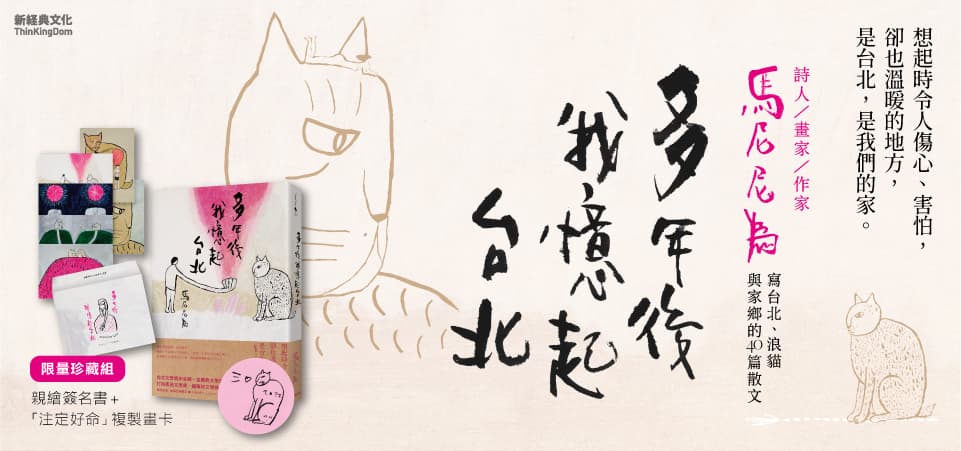 新經典文化
ThinKingDom
想起時令人傷心、害怕，
卻也溫暖的地方，
是台北，是我們的家。
詩人／畫家／作家
馬尼尼為
寫台北、浪貓
與家鄉的40篇散文
多年後
我憶起
台北
多年後
我憶起
台北
馬尼尼為
限量珍藏組
親繪簽名書+
「注定好命」複製畫卡